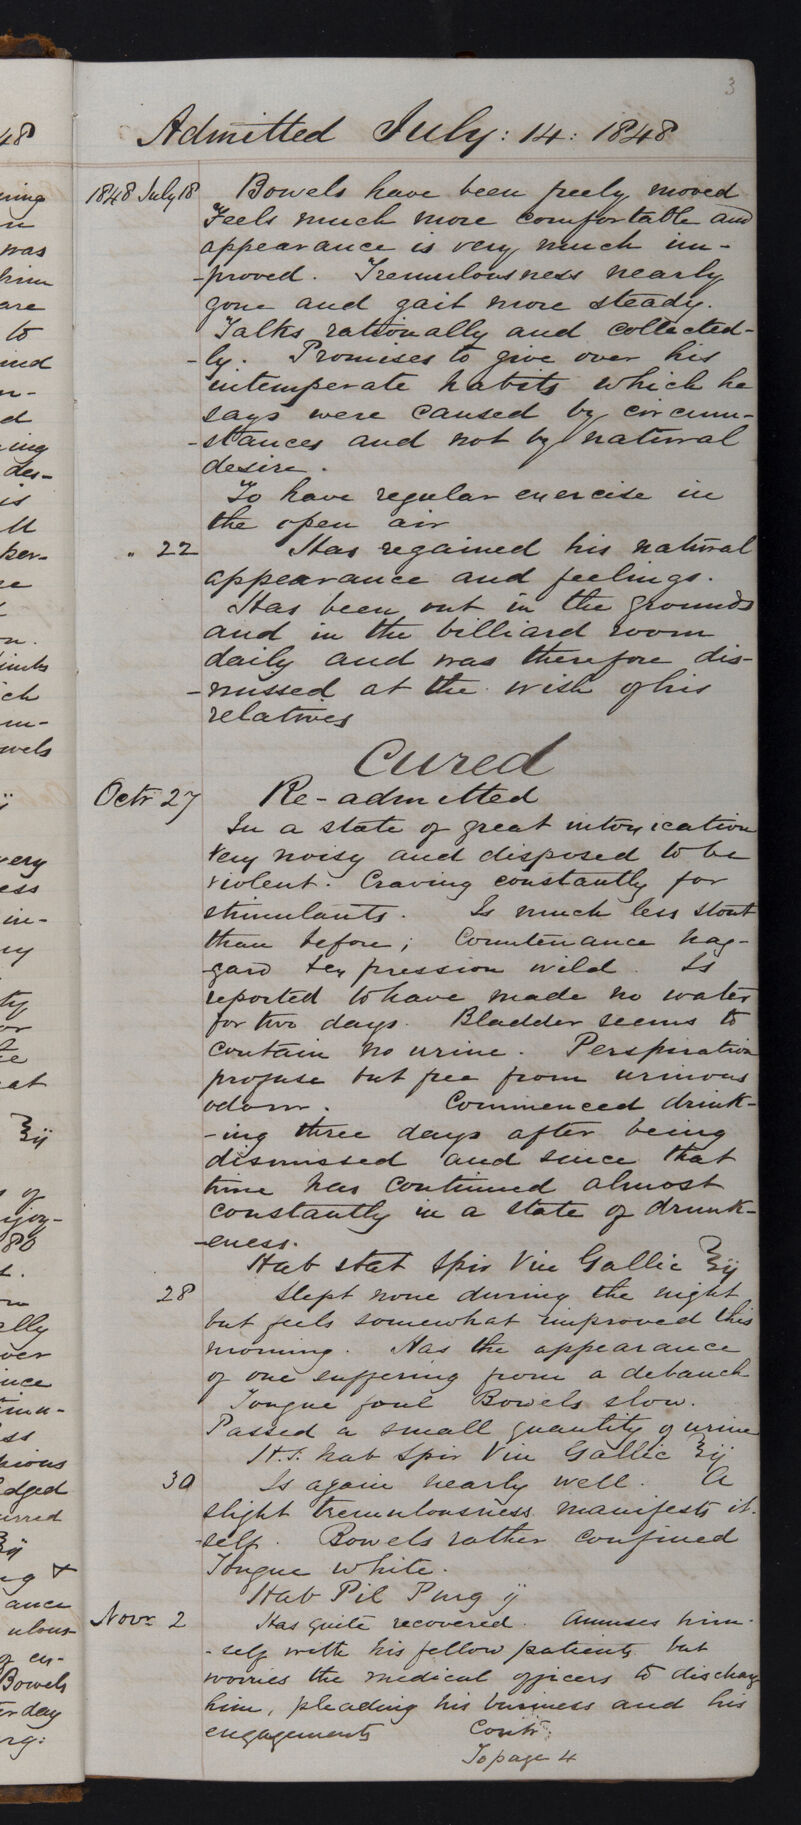 3
Admitted July: 14: 1848
1848 July 18 Bowels have been freely moved
Feels much more comfortable and
appearance is very much im-
-proved. Tremulousness nearly
gone and gait more steady.
Talks rationally and collected-
-ly. Promises to give over his
intemperate habits which he
says were caused by circum-
-stances and not by natural
desire.
To have regular exercise in
the open air
" 22 Has regained his natural
appearance and feelings.
Has been out in the grounds
and in the billiard room
daily and was therefore dis-
-missed at the wish of his
relatives
Cured
Octr 27 Re-admitted
In a state of great intoxication
Very noisy and disposed to be
violent. Craving constantly for
stimulants. Is much less stout
than before; Countenance hag-
-gard & expression wild. Is
reported to have made no water
for two days. Bladder seems to
contain no urine. Perspiration
profuse but free from urinous
odour. Commenced drink-
-ing three days after being
dismissed and since that
time has continued almost
constantly in a state of drunk-
-eness.
Hab stat Spir Vin Gallic ℥ij
28 Slept none during the night
but feels somewhat improved this
morning. Has the appearance
of one suffering from a debauch
Tongue foul Bowels slow.
Passed a small quantity of urine
H.S. hab Spir Vin Gallic ℥ij
30 Is again nearly well. A
slight tremulousness manifests it-
-self. Bowels rather confined
Tongue white.
Hab Pil Purg ij
Novr 2 Has quite recovered. Amuses him-
-self with his fellow patients but
worries the medical officers to discharge
him, pleading his business and his
engagements Contd.
To page 4